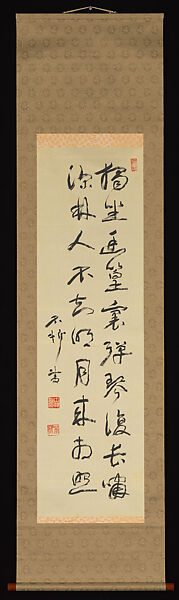 獨坐幽篁裏弾琴復長嘯
深林人不知明月来相照
不折書